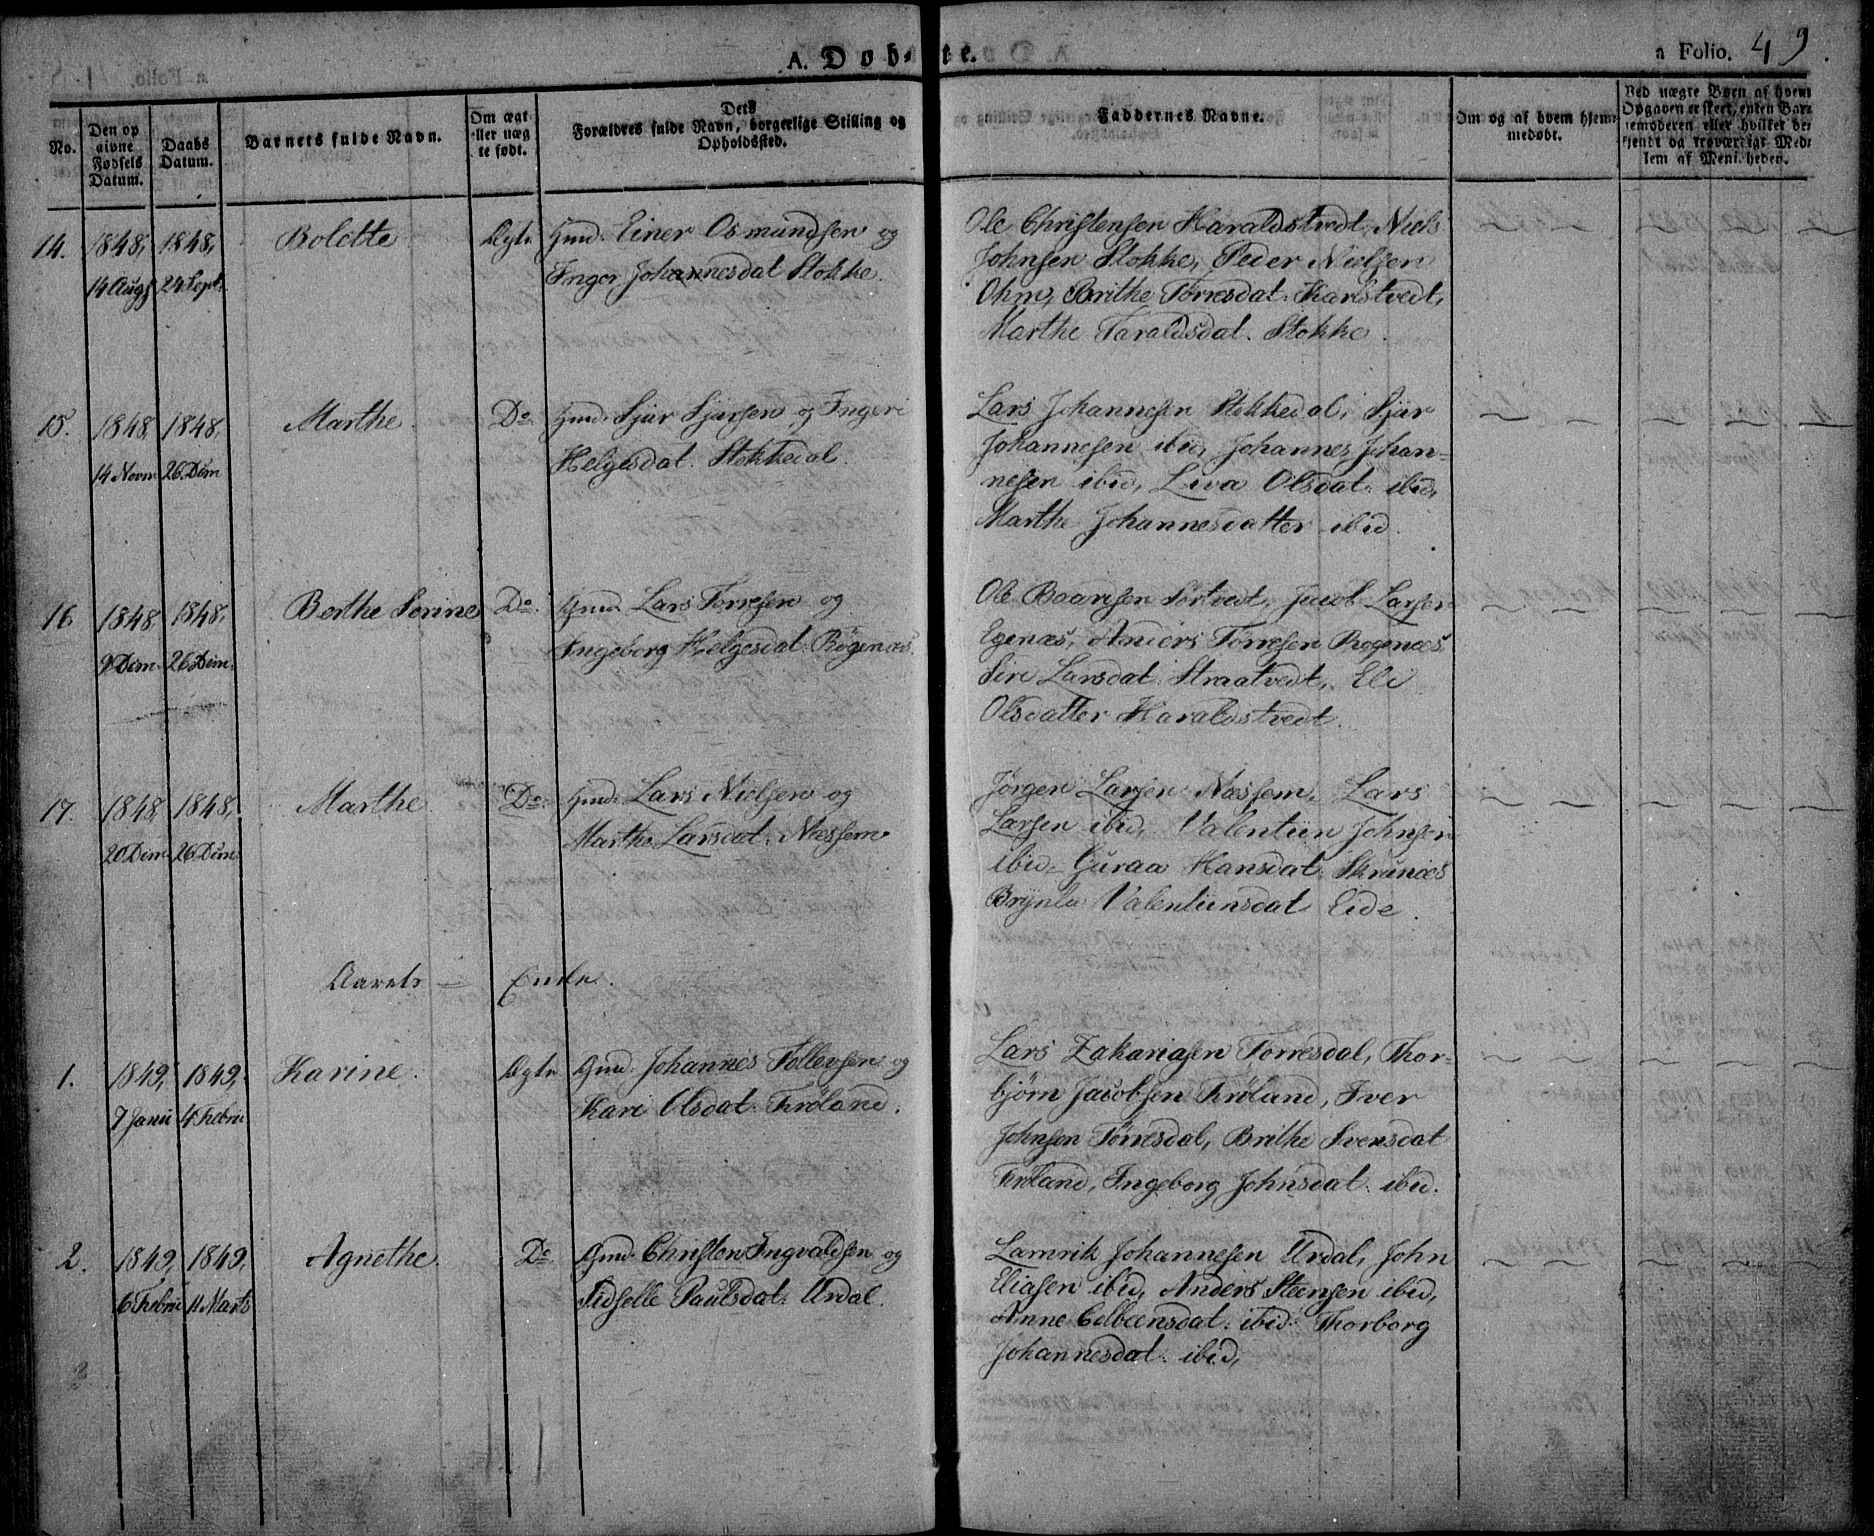 A. Døb-
te.
a Folio. 49.
No.
Den op
givne
Fødsels
Datum.
Daabs
Datum.
Barnets fulde Navn.
Om ægt
eller uæg
te født.
Dets
Forældres fulde Navn, borgerlige Stilling og
Opholdssted.
Faddernes Navne.
Om og af hvem hjem-
medøbt.
Ved uægte Børn af hvem
Opgaven er skeet, enten Bar-
nemoderen eller hvilket be-
kjendt og troværdigt Med-
lem af Menigheden.
14.
1848,
14 Aug
1848,
24 Sept.
Bolette
Ægte
Gmd. Einer Osmundsen og
Inger Johannesdat Stokke.
Ole Christensen Haraldstvedt, Niels
Johnsen Stokke, Peder Nielsen
Ohm, Brithe Torresdat. Karlstvedt,
Marthe Taraldsdat. Stokke.
15.
1848,
14 Novm
1848,
26 Dem
Marthe.
Do
Gmd. Sjur Sjursen og Ingeri
Helgesdat. Stokkedal
Lars Johannesen Stokkedal, Sjur
Johannesen ibid, Johannes Johan-
nesen ibid, Liva Olsdat. ibid,
Marthe Johannesdatter ibid.
16
1848
9 Dem
1848,
26 Dem.
Berthe Serine
Do.
Gmd. Lars Torresen og
Ingeborg Helgesdat. Bøgenæs.
Ole Baarsen Sørtvedt, Jacob Larsen
Egenæs, Anders Torresen Bogenæs,
Siri Larsdat. Straatvedt, Eli
Olsdatter Haraldstvedt.
17.
1848,
20 Dem
1848,
26 Dem
Marthe
Do.
Gmd. Lars Nielsen og
Marthe Larsdat. Næssem
Jørgen Larsen Næssem, Lars
Larsen ibid, Valentiin Johnsen
ibid, Guraa Hansdat. Skrunæs
Brynla Valentiinsdat Eide.
Aarets — Ende.
1.
1849,
7 Janu
1849,
4 Febru
Karine.
Ægte
Gmd. Johannes Tollevsen og
Kari Olsdat. Frøland.
Lars Zakariasen Torresdal, Thor-
bjørn Jacobsen Frøland, Iver
Johnsen Tørresdal, Brithe Svensdat
Frøland, Ingeborg Johnsdat. ibid.
2.
1849,
6 Febru
1849,
11 Marts
Agnethe.
Do.
Gmd. Christen Ingvaldsen og
Sidselle Paulsdat. Urdal.
Lamrik Johannesen Urdal, John
Eliasen ibid, Anders Steensen ibid,
Anne ibid. Thorborg
Johannesdat. ibid,